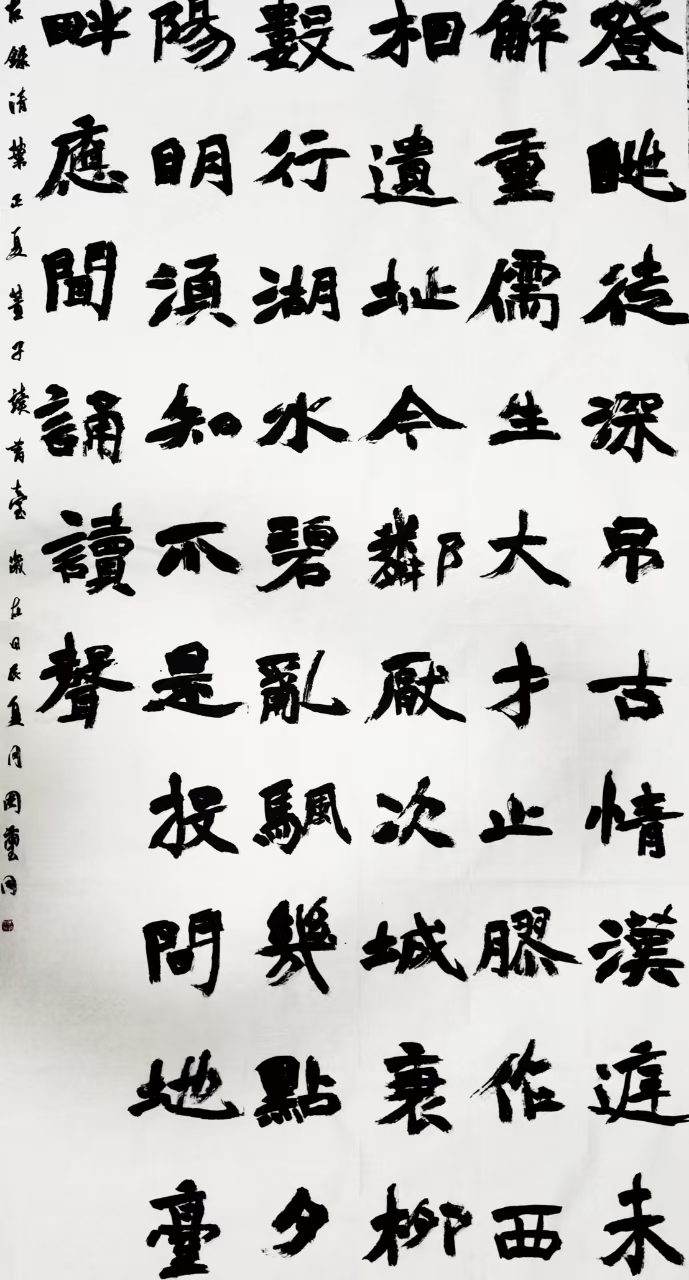 登眺徒深吊古情漢廷未
解重儒生大才止膠作西
相遺址今鄰厭次城衰柳
數行湖水碧亂颿幾點夕
陽明須知不是投閒地臺
畔應聞誦讀聲
右錄清葉正夏董子讀書臺歲在甲辰夏月國